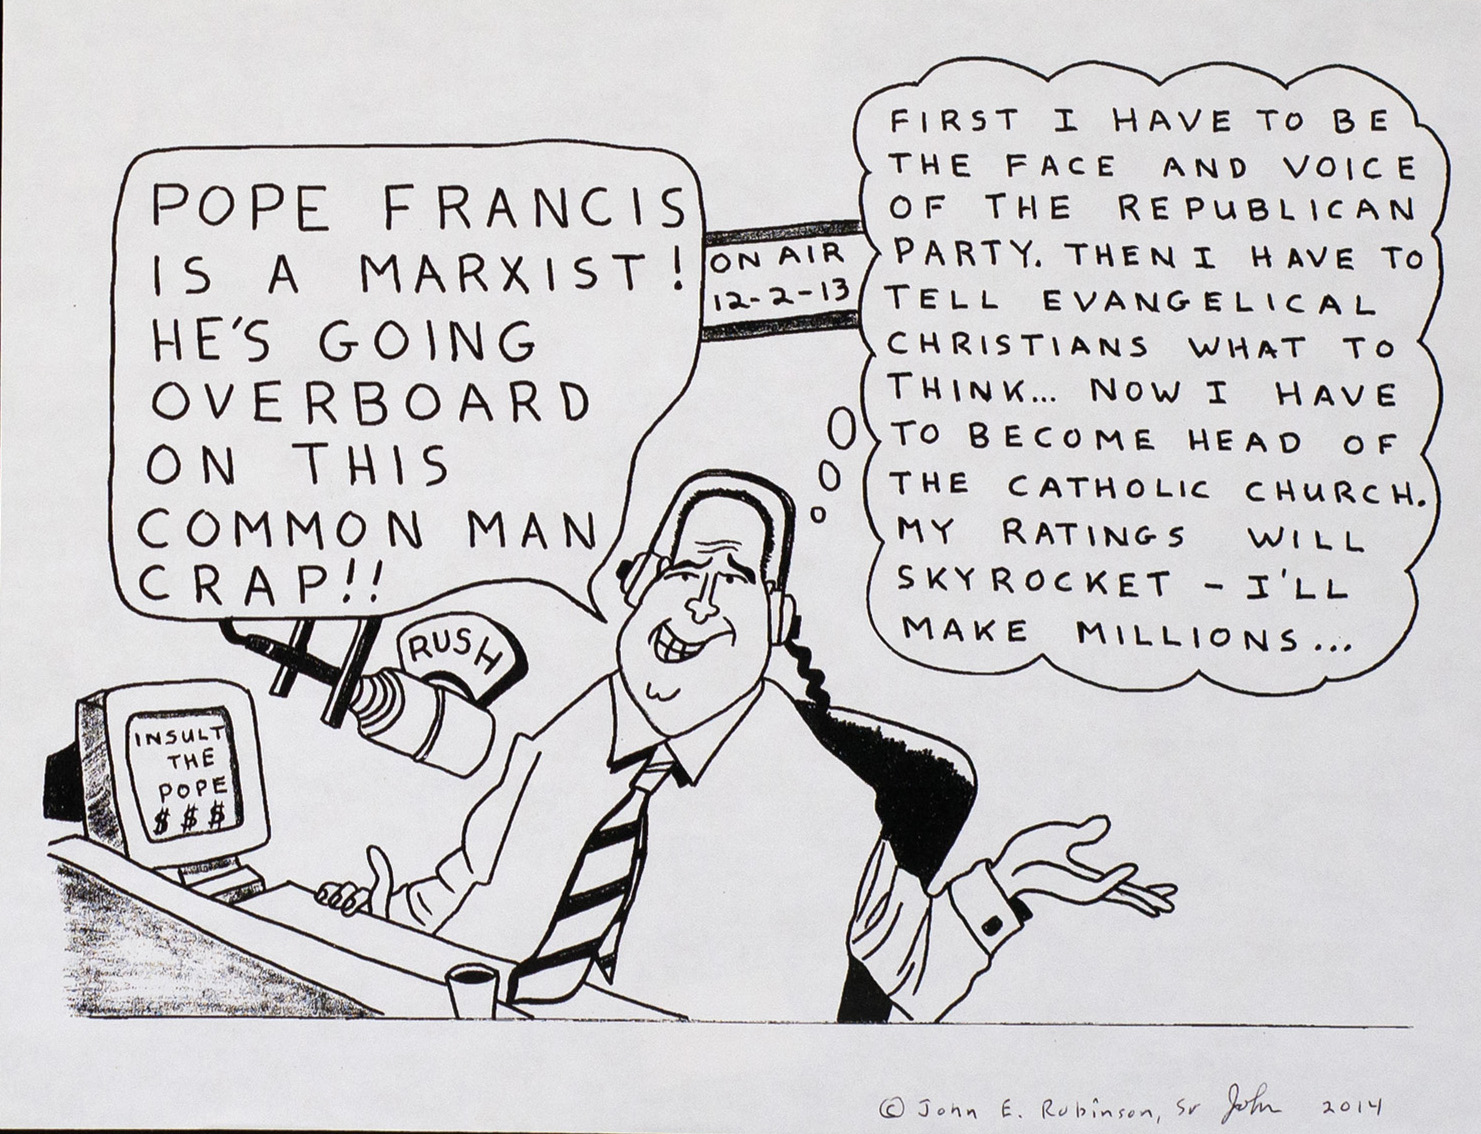 POPE FRANCIS
IS A MARXIST!
HE'S GOING
OVERBOARD
ON THIS
COMMON MAN
CRAP!!
ON AIR
12-2-13
FIRST I HAVE TO BE
THE FACE AND VOICE
OF THE REPUBLICAN
PARTY. THEN I HAVE TO
TELL EVANGELICAL
CHRISTIANS WHAT TO
THINK... NOW I HAVE
TO BECOME HEAD OF
THE CATHOLIC CHURCH.
MY RATINGS WILL
SKYROCKET - I'LL
MAKE MILLIONS...
RUSH
INSULT
THE
POPE
$ $ $
© John E. Robinson, Sr John 2014